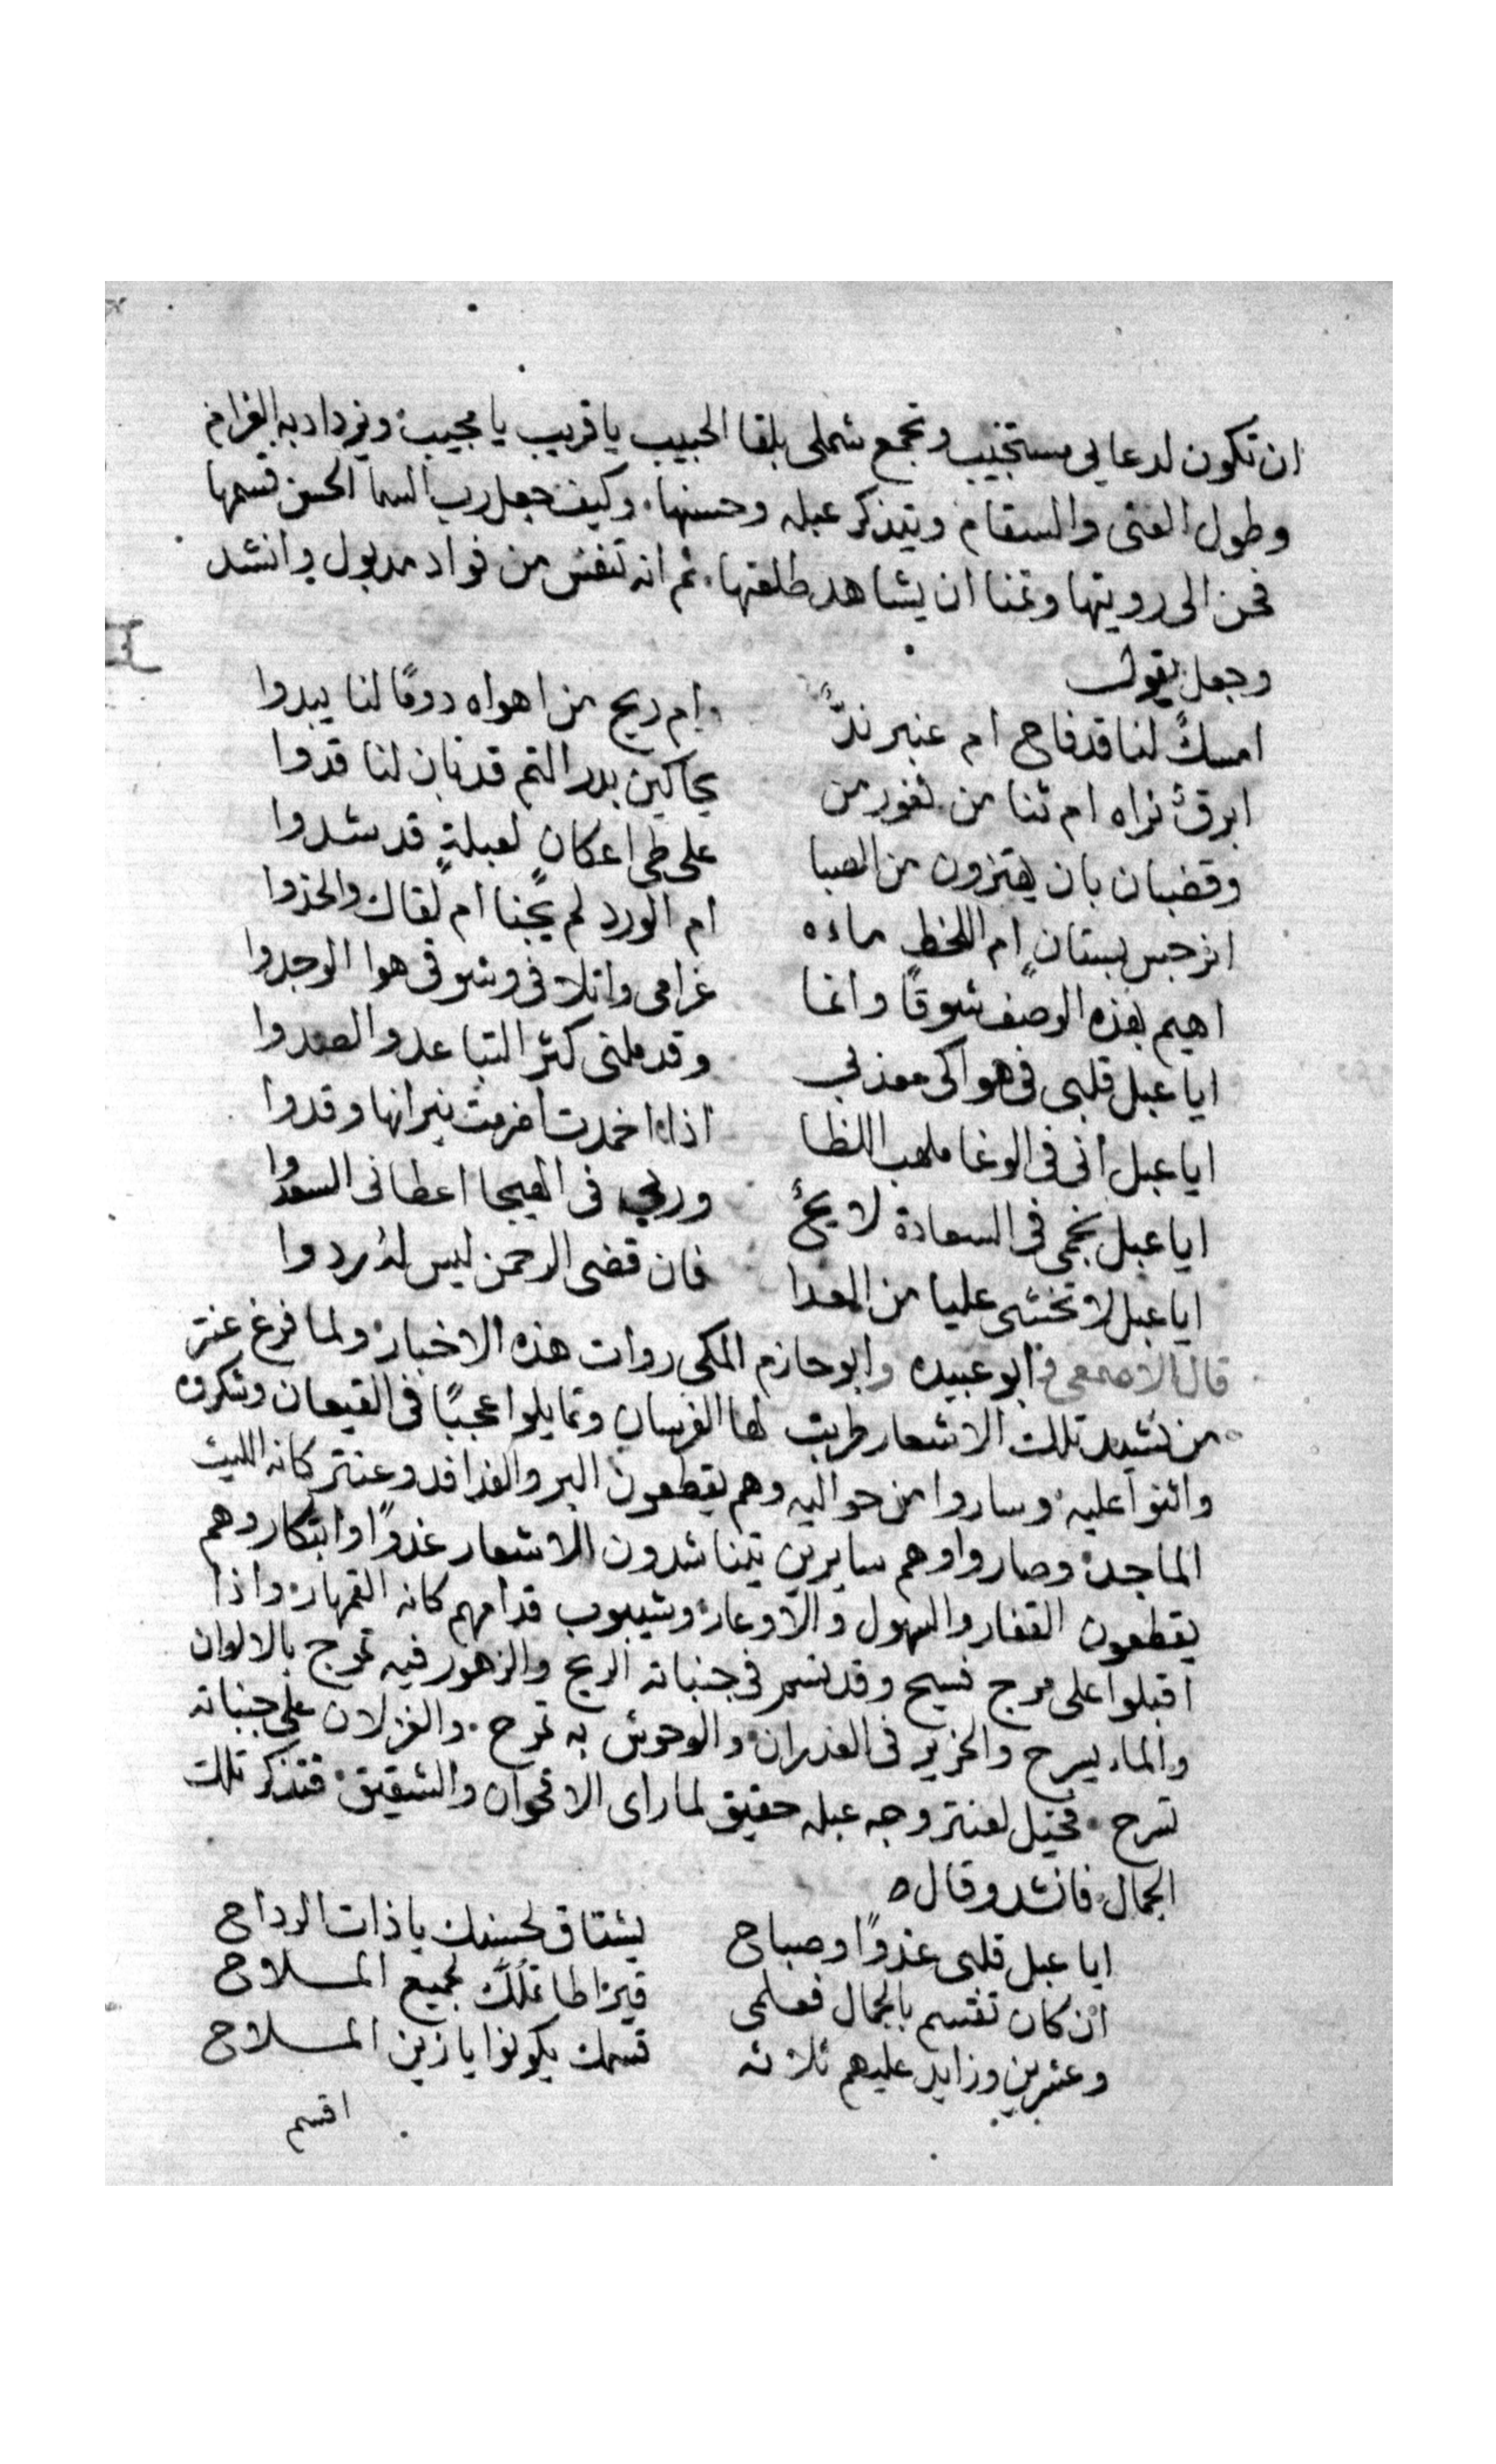 ان تكون لدعايى مستجيب وتجمع شملى بلقا الحبيب يا قريب يا مجيب ويزداد به الغرام
وطول العنى والسقام ويتذكر عبله وحسنها وكيف جعل رب السما الحسن قسمها
فحن الى رويتها وتمنا ان يشاهد طلعتها ثم انه تنفس من فواد مدبول وانشد
وجعل يقول
امسكً لنا قد فاح ام عنبر ندًّ ام ريح من اهواه دومًا لنا يبدوا
ابرقٌ نراه ام ثنا من ثغور من يحاكين بدر التم قد بان لنا قدوا
وقضبان بان يهتزون من الصبا على طى اعكانٍ لعبلةٍ قد شدوا
انرجس بستانٍ ام اللحظ ماءه ام الورد لم يجنا ام لقاك والخدوا
اهيم بهذه الوصف شوقًا وانما غرامى واتلافى وشوقى هوا الوجدوا
ايا عبل قلبى فى هواكى معذبى وقد ملنى كثر التباعد والصدوا
ايا عبل انى فى الوغا ملهب اللظا اذا اخمدت اضرمت نيرانها وقدوا
ايا عبل نجمى فى السعادة لا يح وربى فى الهيجا اعطانى السعدوا
ايا عبل لا تخشى عليا من العدا فان قضى الرحمن ليس له ردوا
قال الاصمعى وابو عبيده وابو حازم المكى روات هذه الاخبار ولما فرغ عنتر
من نشيد تلك الاشعار طربت لها الفرسان وتمايلوا عجبًا فى القيعان وشكروه
واثنوا عليه وساروا من حواليه وهم يقطعون البر والفدافد وعنتر كانه الليث
الماجد وصاروا وهم سايرين يتناشدون الاشعار غدوًا وابتكار وهم
يقطعون القفار والسهول والاوعار وشيبوب قدامهم كانه القمهار واذا
اقبلوا على مرج فسيح وقد نسم فى جنباته الريح والزهور فيه تموج بالالوان
والماء يسرح والخرير فى الغدران والوحوش به تمرح والغزلان على جنباته
تسرح فخيل لعنتر وجه عبله حقيق لما راى الاقحوان والشقيق فتذكر تلك
الجمال فانشد وقال
ايا عبل قلبى غدوًا وصباح يشتاق لحسنك يا ذات الرداح
ان كان تقتسم بالجمال فعلمى قيزاطا تملك لجميع الملاح
وعشرين وزايد عليهم ثلاثه قسمك يكونوا يا زين الملاح
اقسم